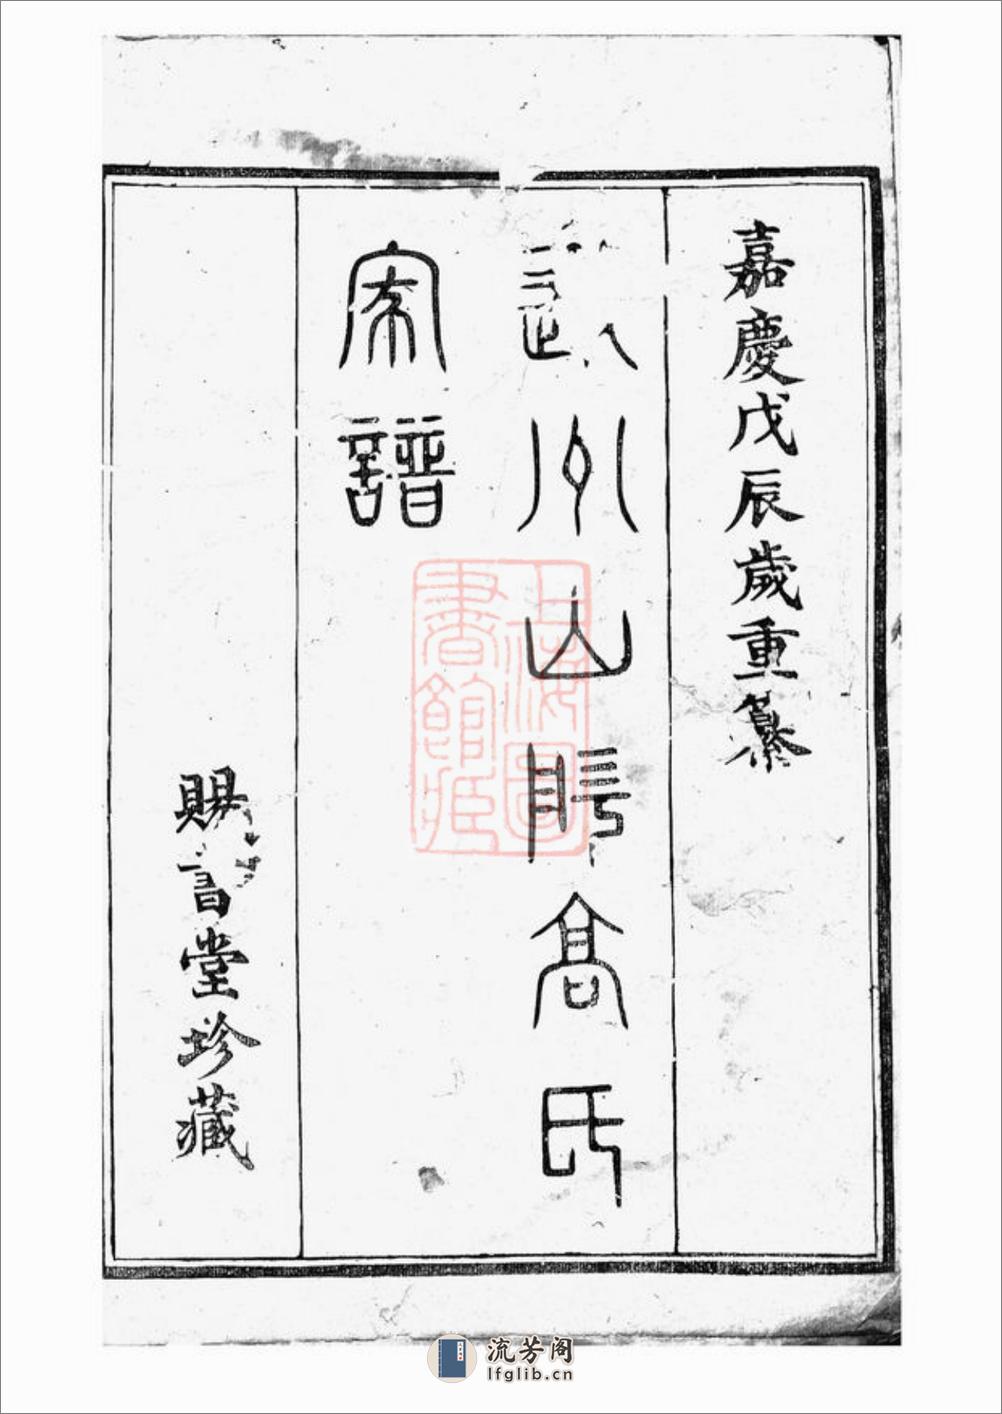 嘉慶戊辰歲重纂
州山 高氏
家譜
賜書堂珍藏
上海圖
書館藏
流芳阁
lfglib.cn